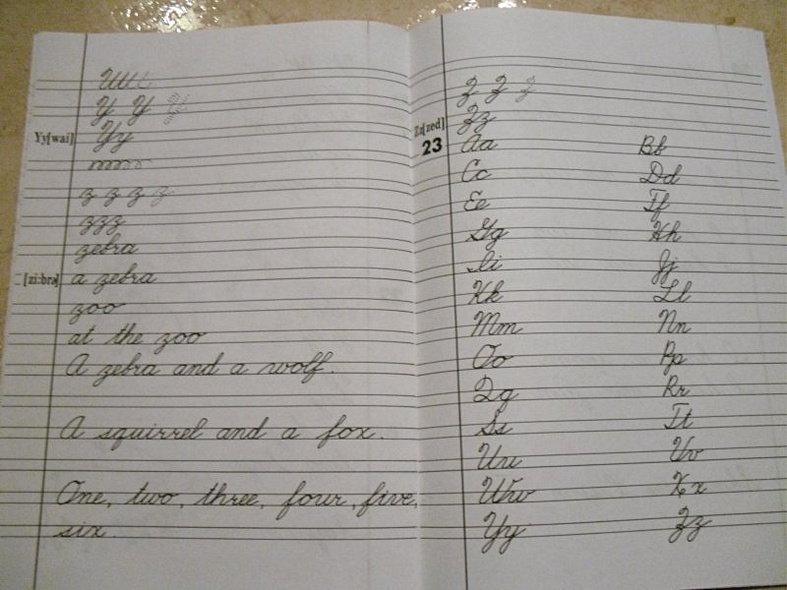 Uu
Y Y Y
Yy[wai]
Yy
z z z z
zzz
zebra
[zi:brə] a zebra
zoo
at the zoo
A zebra and a wolf.
A squirrel and a fox.
One, two, three, four, five,
six.
Z Z Z
Zz[zed] Zz
23 Aa Bb
Cc Dd
Ee Ff
Gg Hh
Ii Jj
Kk Ll
Mm Nn
Oo Pp
Qq Rr
Ss Tt
Uu Vv
Ww Xx
Yy Zz